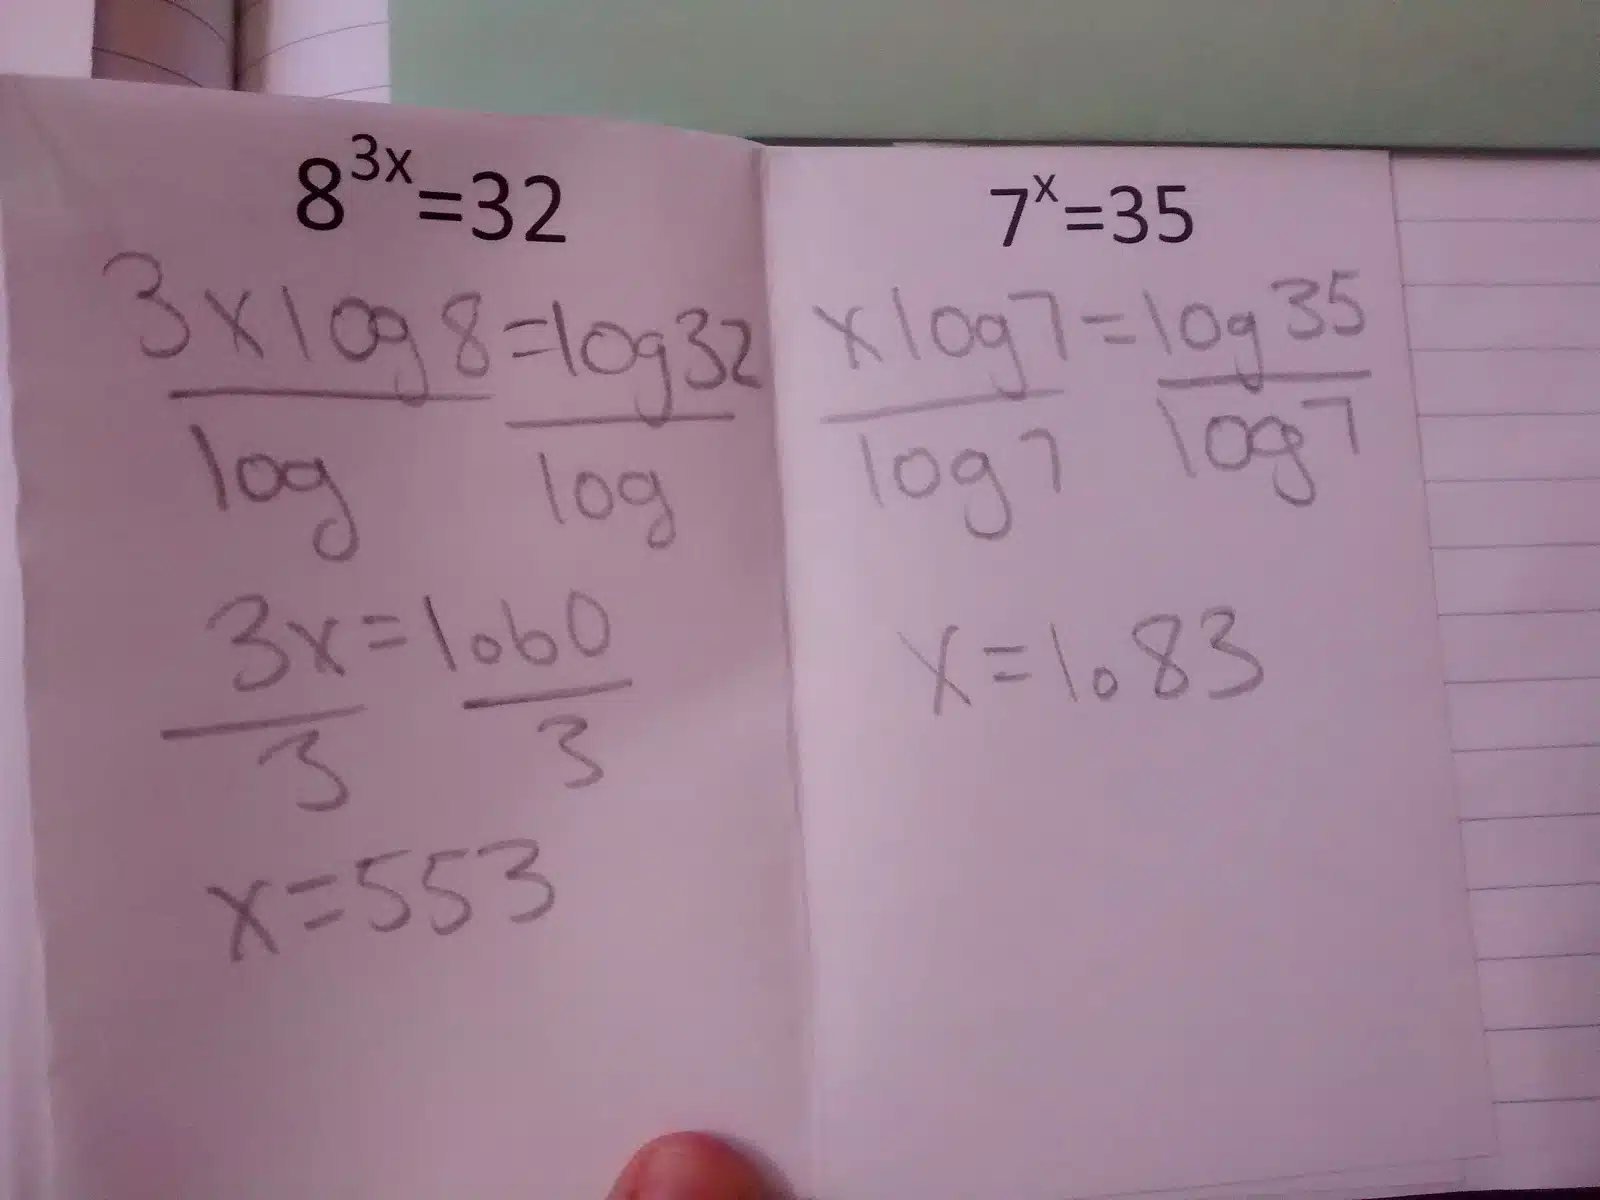 8^3x=32
3xlog8=log32
log log
3x=1.660
3 3
x=553
7^x=35
xlog7=log35
log7 log7
x=1.83